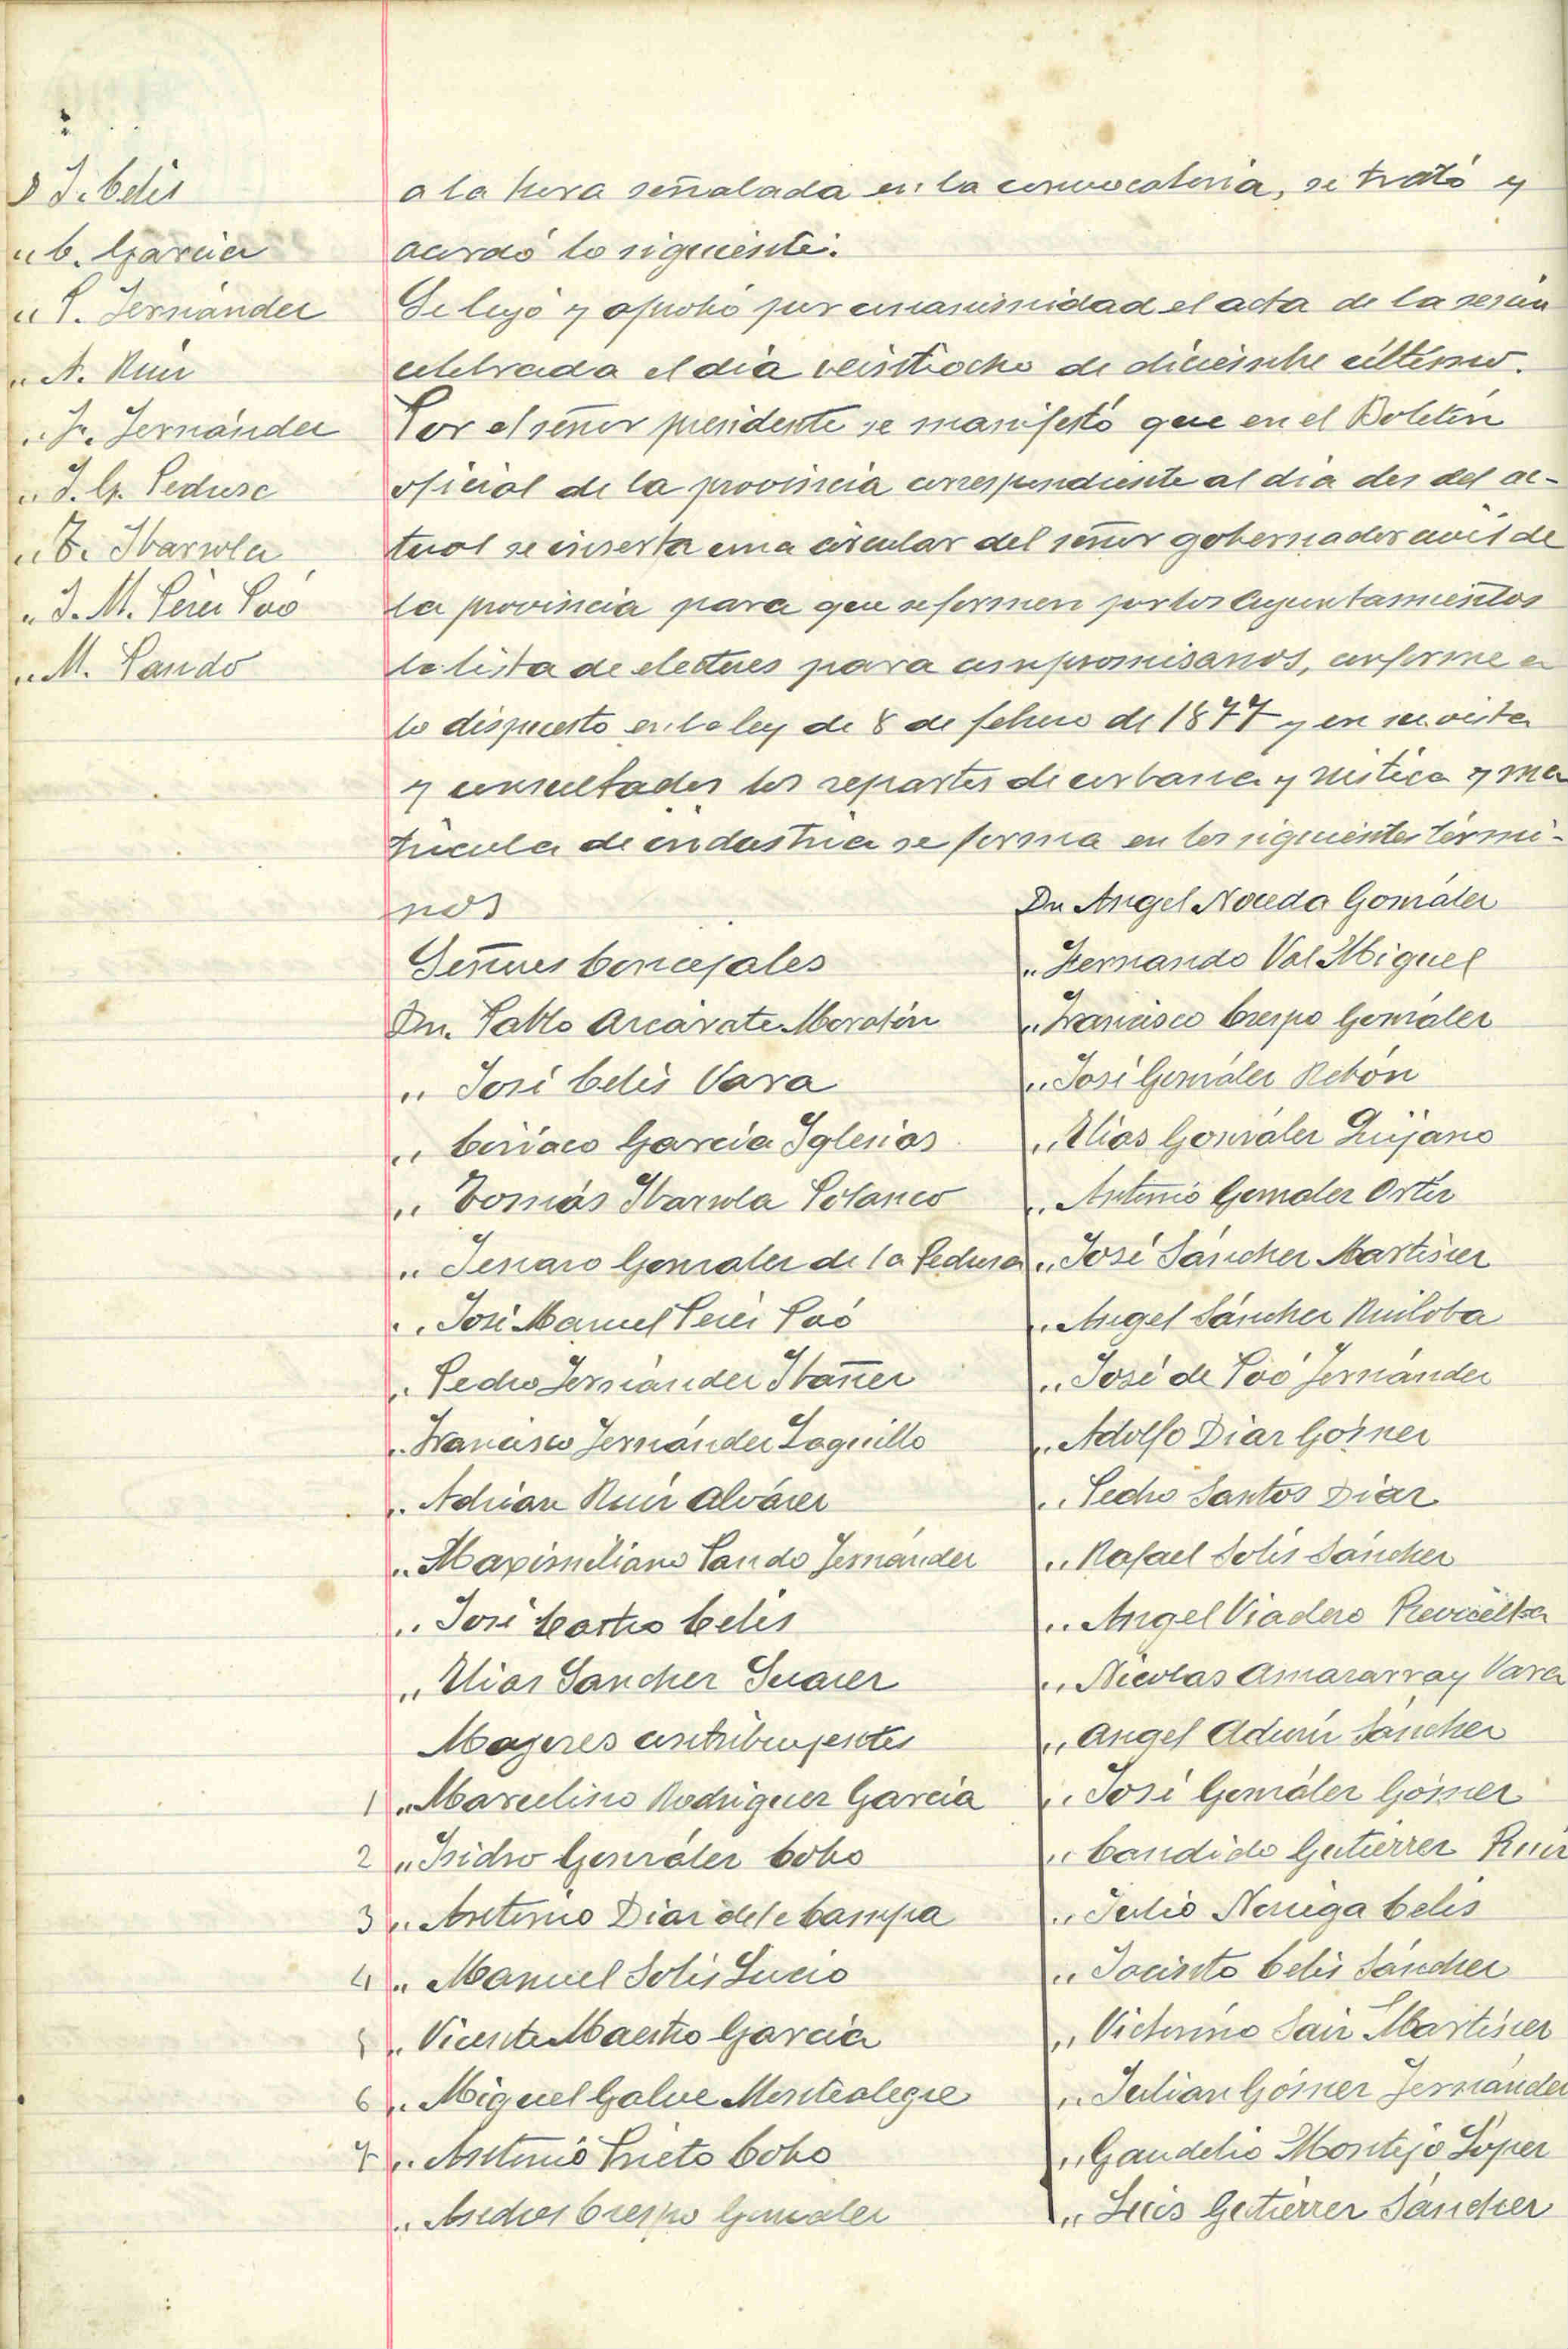 D J. Celis
" C. García
" P. Fernández
" A. Ruiz
" F. Fernández
" J. G. Pedrosa
" T. Ibarrola
" J. M. Pérez Poó
" M. Pando
a la hora señalada en la convocatoria, se trató y
acordó lo siguiente.
Se leyó y aprobó por unanimidad el acta de la sesión
celebrada el día veintiocho de diciembre último.
Por el señor presidente se manifestó que en el Boletín
oficial de la provincia correspondiente al día dos del ac-
tual se inserta una circular del señor gobernador civil de
la provincia para que se formen por los Ayuntamientos
la lista de electores para compromisarios, conforme a
lo dispuesto en la ley de 8 de febrero de 1877 y en su vista
y consultados los repartos de urbana y rústica y ma
trícula de industria se forma en los siguientes térmi-
nos
Señores Concejales
Dn. Pablo Arcarate Moratín
" José Celis Vara
" Ciriaco García Iglesias
" Tomás Ibarrola Polanco
" Jenaro González de la Pedrosa
" José Manuel Pérez Poó
" Pedro Fernández Ibañez
" Francisco Fernández Laguillo
" Adrian Ruiz Alvárez
" Maximiliano Pando Fernández
" José Castro Celis
" Elias Sanchez Suarez
Mayores contribuyentes
1 " Marcelino Rodriguez García
2 " Isidro González Cobo
3 " Antonio Diaz de la Campa
4 " Manuel Solis Lucio
5 " Vicente Maestro García
6 " Miguel Galve Montealegre
7 " Antonio Prieto Cobo
" Andres Crespo Gonzalez
Dn Angel Noceda González
" Fernando Val Miguel
" Francisco Crespo González
" José González Rebón
" Elias González Quijano
" Antonio Gonzalez Ortiz
" José Sánchez Martínez
" Angel Sánchez Ruiloba
" José de Poó Fernández
" Adolfo Diaz Gómez
" Pedro Santos Diaz
" Rafael Solis Sánchez
" Angel Viadero Revuelta
" Nicolas Amararray Vara
" Angel Aduriz Sánchez
" José González Gómez
" Candido Gutierrez Ruiz
" Julio Noriega Celis
" Jacinto Celis Sánchez
" Victorino Saiz Martínez
" Julian Gómez Fernández
" Gaudelio Montejo López
" Luis Gutierrez Sánchez